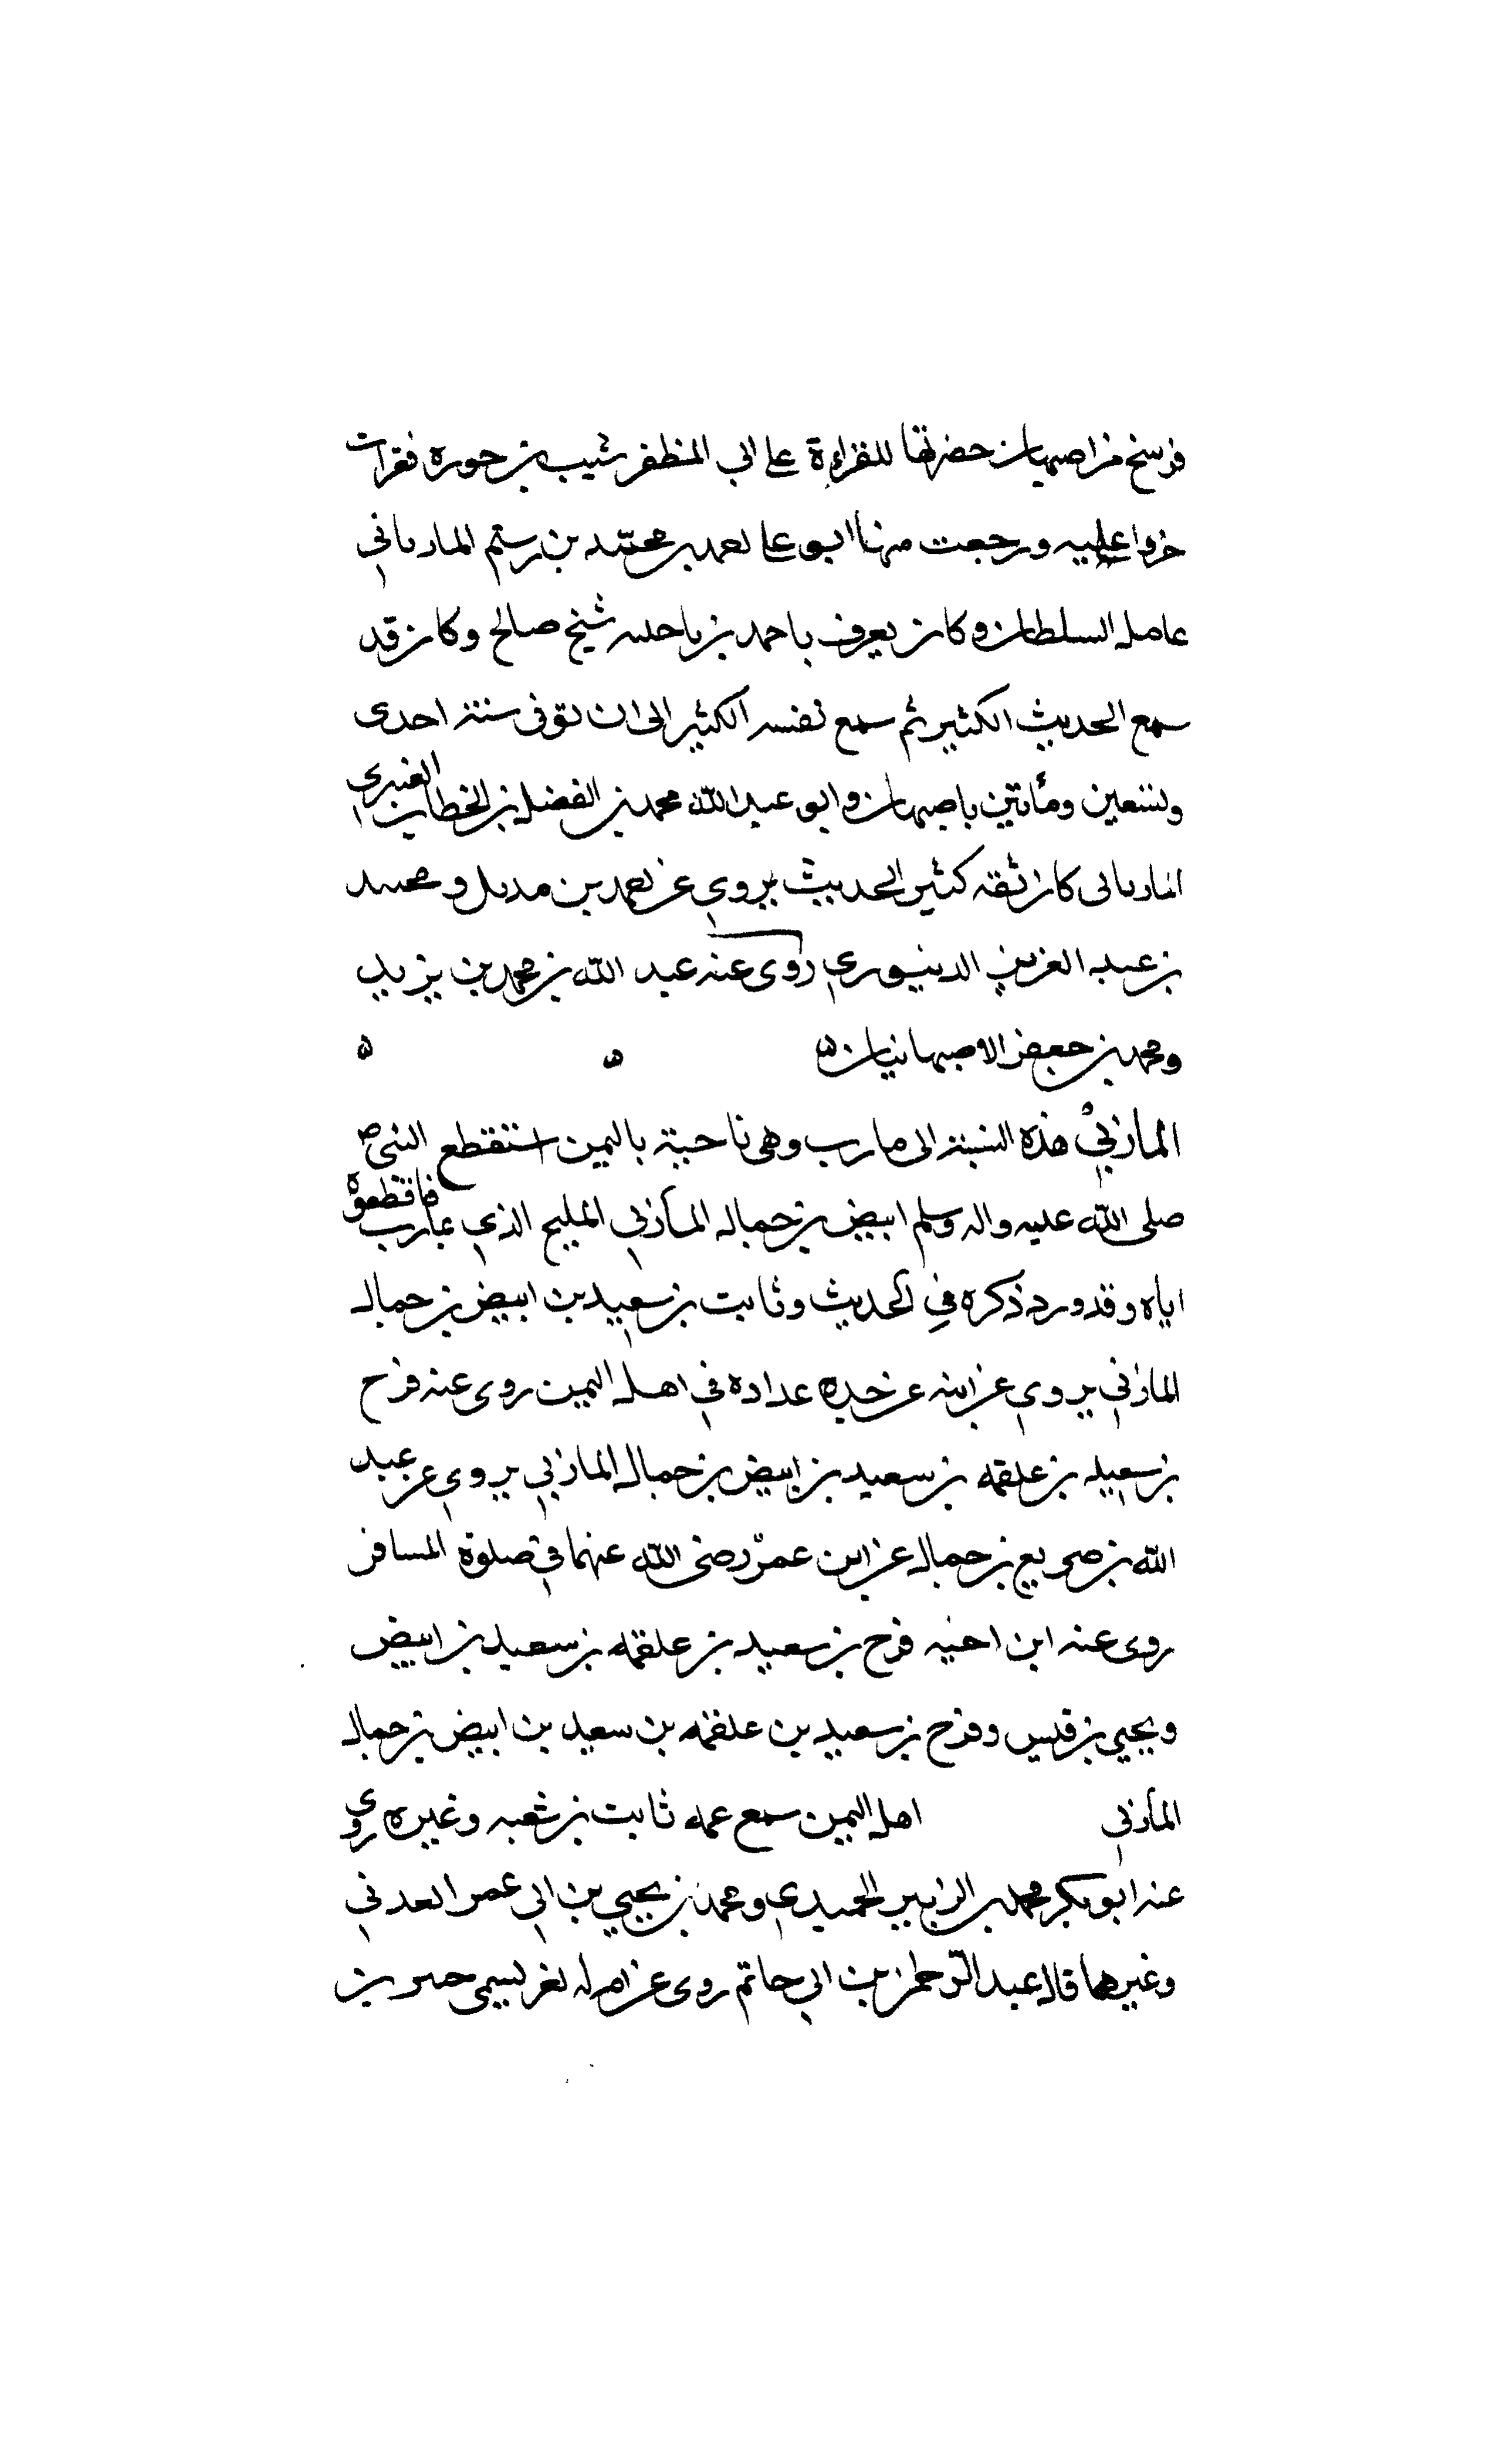 فرسخ من اصبهان حضرتها للقراءة على ابى المظفر شبيب بن حوره فقرات
جزوا عليه ورجعت منها ابو على احمد بن محمد بن رستم الماربانى
عامل السلطان وكان يعرف باحمد بن شيخ صالح وكان قد
سمع الحديث الكثير ثم سمع نفسه الكثير الى ان توفى سنة احدى
وتسعين ومأتين باصبهان وابو عبد الله محمد بن الفضل بن الخطاب العنبرى
الماربانى كان ثقه كثير الحديث يروى عن احمد بن بديل ومحمد
بن عبد العزيز الدينورى روى عنه عبد الله بن محمد بن يزيد
ومحمد بن جعفر الاصبهانيان ه ه ه
الماربى هذه النسبة الى مارب وهى ناحية باليمن استقطع النبى
صلى الله عليه واله وسلم ابيض بن حمال المأربى المليح الذى بمارب فاقطعوه
اياه وقد ورد ذكره فى الحديث وثابت بن سعيد بن ابيض بن حمال
الماربى يروى عن ابيه عن جده عداده فى اهل اليمن روى عنه فرج
بن سعيد بن علقمه بن سعيد بن ابيض بن حمال الماربى يروى عن عبد
الله بن بن حمال عن ابن عمر رضى الله عنهما فى صلوة المسافر
روى عنه ابن اخيه فرج بن سعيد بن علقمه بن سعيد بن ابيض
ويحيى بن قيس وفرج بن سعيد بن علقمه بن سعيد بن ابيض بن حمال
المأربى اهل اليمن سمع عمه ثابت بن شعبه وغيره روى
عنه ابو بكر محمد بن الزبير الحميدى ومحمد بن يحيى بن ابى عمر العدنى
وغيرهما قال عبد الرحمن بن ابى حاتم روى عن